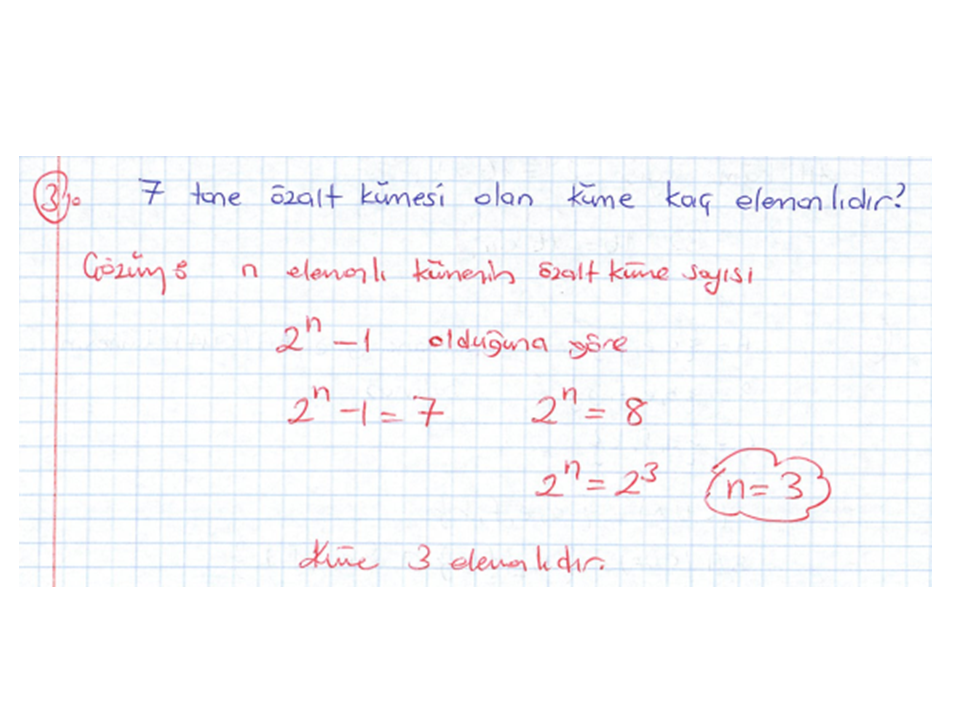 3) 7 tane özalt kümesi olan küme kaç elemanlıdır?
Çözüm: n elemanlı kümenin özalt küme sayısı
2ⁿ - 1 olduğuna göre
2ⁿ - 1 = 7 2ⁿ = 8
2ⁿ = 2³ n = 3
Küme 3 elemanlıdır.